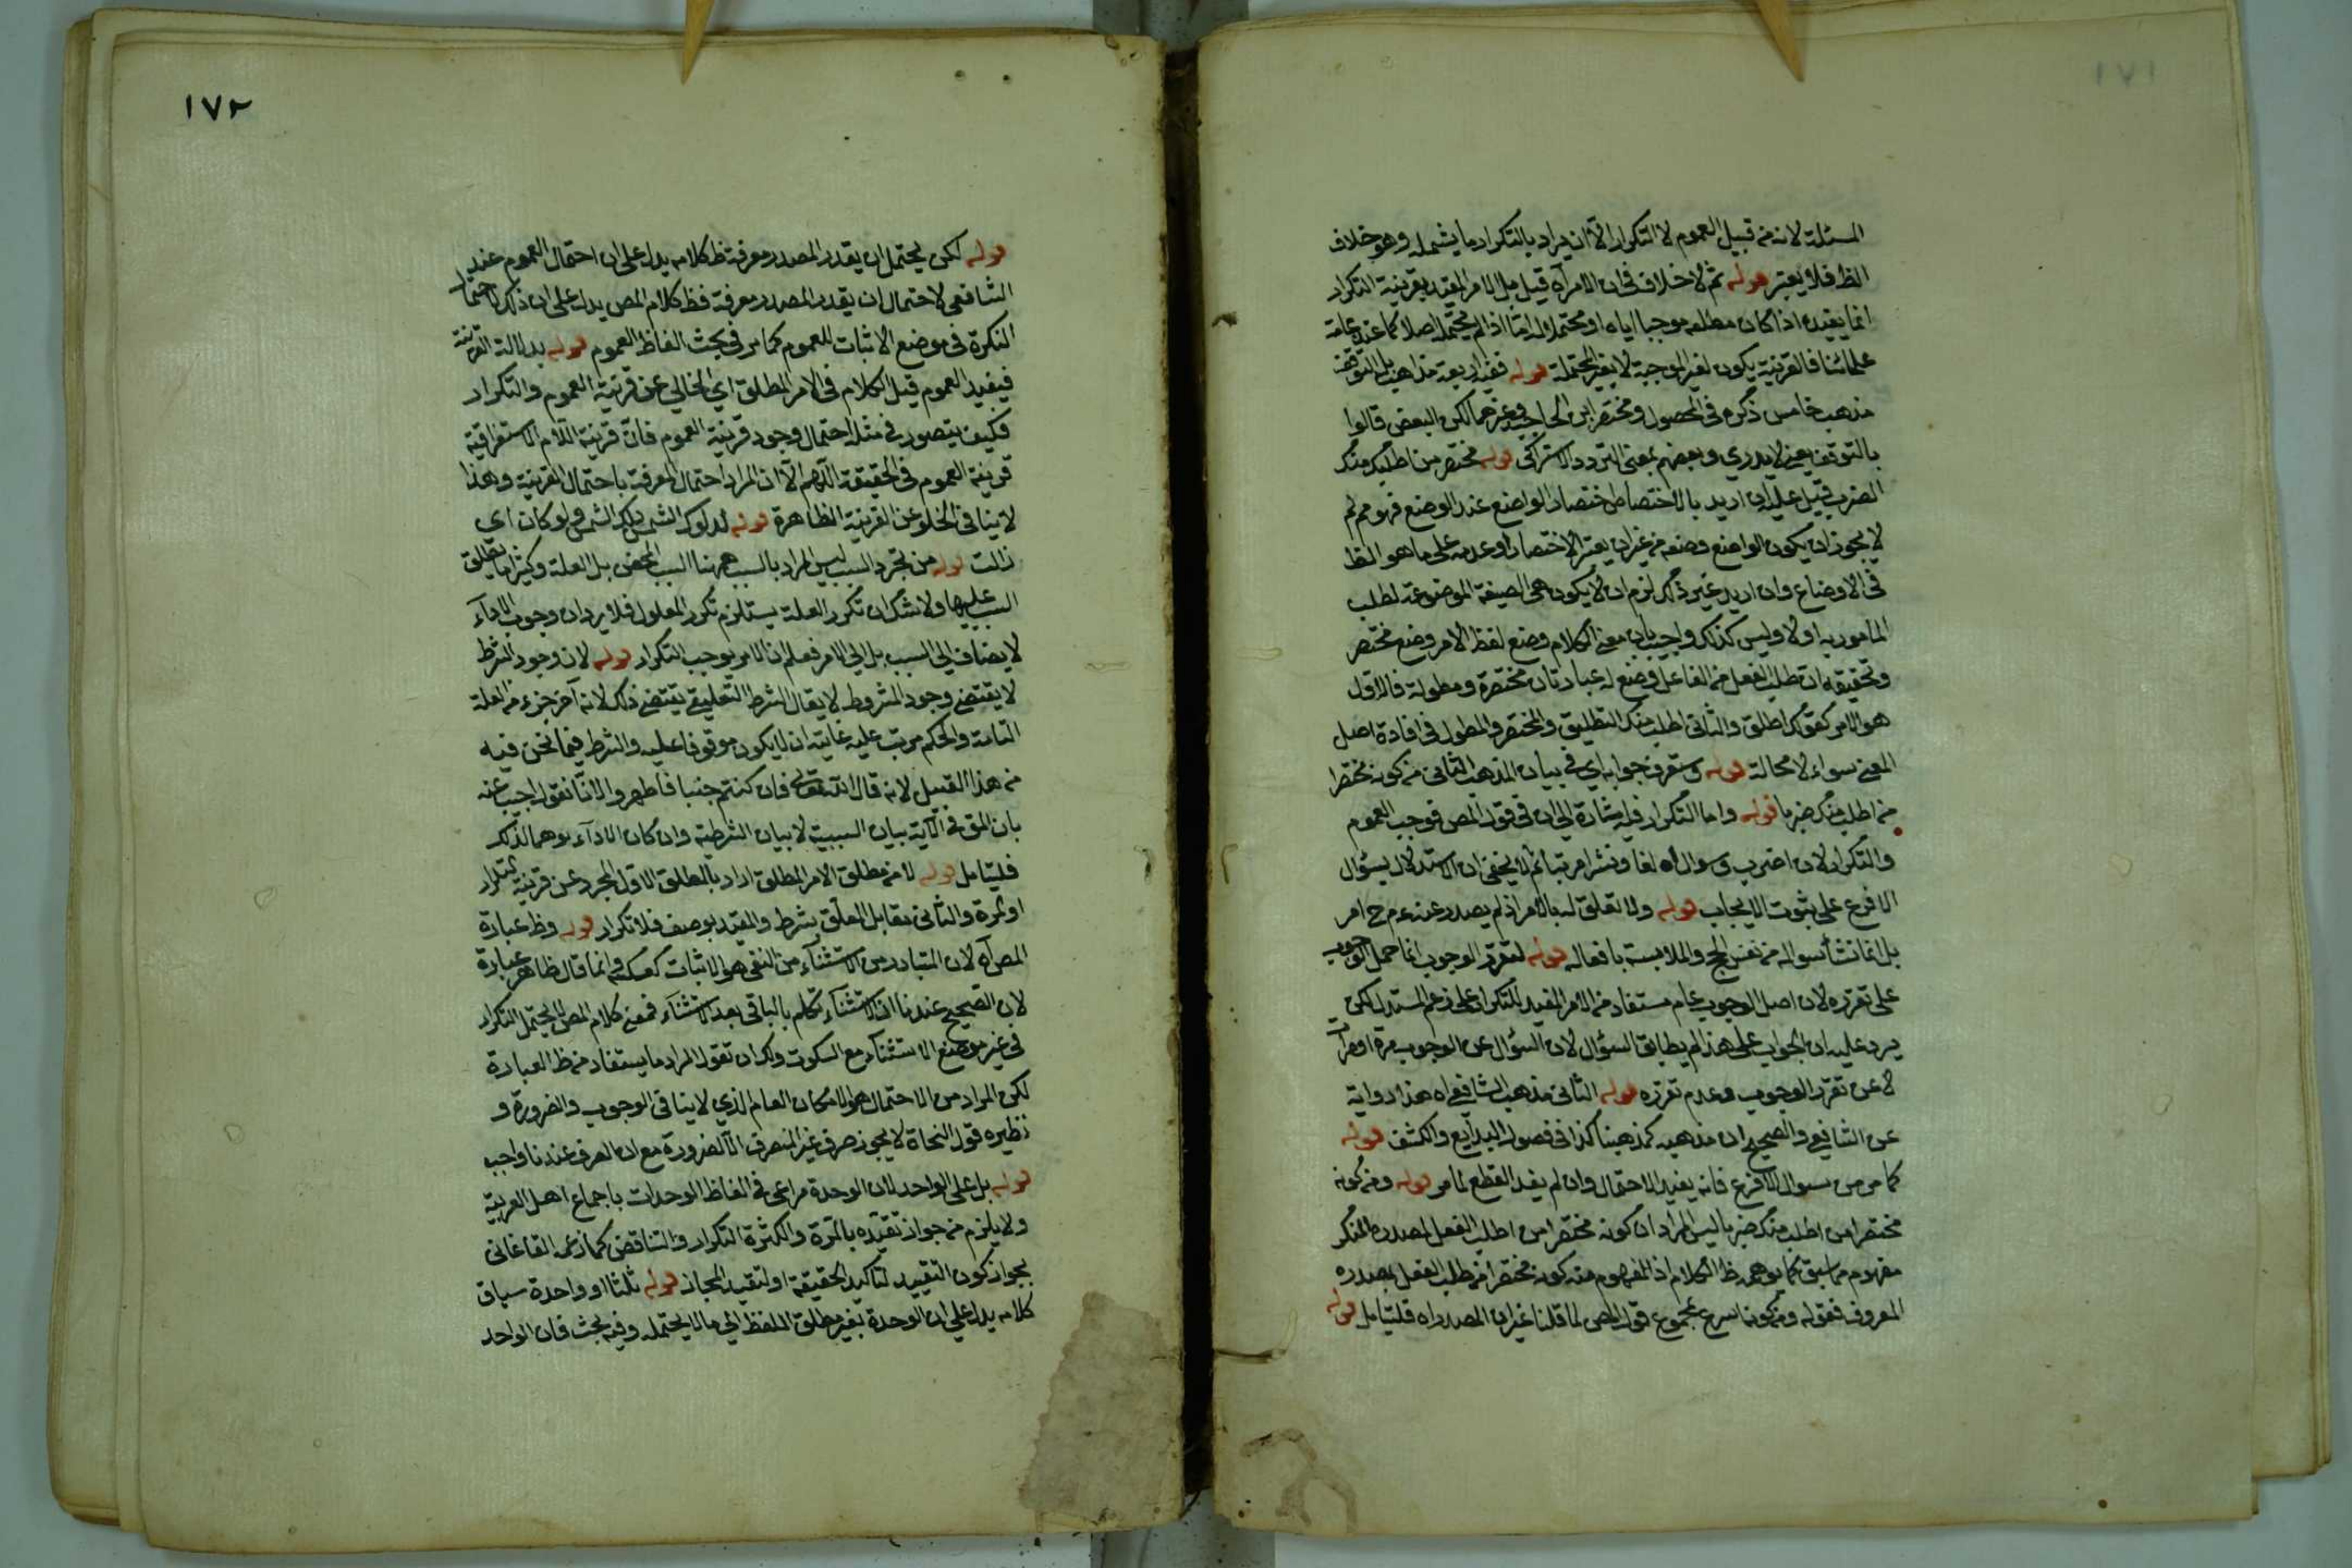 ١٧١
المسئلة لانه من قبيل العموم لا التكرار الا ان يراد بالتكرار ما يشمله وهو خلاف
الظ فلا يعتبر قوله ثم لا خلاف في ان الامر آه قيل بل الامر المقيد بقرينة التكرار
انما يفيده اذا كان مطلقه موجبا اياه او محتملا له اما اذا لم يحتمله اصلا كما عند عامة
علمائنا فالقرينة يكون لغير الموجبة لا لغير المحتملة قوله ففيه اربعة مذاهب بل التوقف
مذهب خامس ذكره في المحصول ومختصر ابن الحاجب وغيرهما لكن البعض قالوا
بالتوقف بمعنى لا يدري وبعضهم بمعنى التردد الاشتراكي قوله مختصر من اطلب منك
الضرب قيل عليه ان اريد بالاختصاص اختصار الواضع عند الوضع فهو مم لم
لا يجوز ان يكون الواضع وضعه من غير ان يعتبر الاختصار وعدمه على ما هو الظ
في الاوضاع وان اريد غير ذلك لزم ان لا يكون هي الصيغة الموضوعة لطلب
المامور به اولا وليس كذلك واجيب بان معنى الكلام وضع لفظ الامر وضع مختصر
وتحقيقه ان طلب الفعل من الفاعل وضع له عبارتان مختصرة ومطولة فالاول
هو الامر كقولك اطلق والثاني اطلب منك التطليق والمختصر والمطول في افادة اصل
المعنى سواء لا محالة قوله وستعرف جوابه اي في بيان المذهب الثاني من كونه مختصرا
من اطلب منك ضربا قوله واما التكرار فيه اشارة الى ان في قول المص فوجب العموم
والتكرار لان اضرب وسوال اه لفا ونشرا مرتبا ثم لا يخفى ان الاستدلال بسؤال
الاقرع على ثبوت الايجاب قوله ولا تعلق له بالامر اذ لم يصدر عنه عم ح امر
بل انما نشأ سواله من نفس الحج والملابسة بافعاله قوله لتقرر الوجوب انما حمل الوجوب
على تقرره لان اصل الوجوب عام مستفاد من الامر المفيد للتكرار على زعم المستدل لكن
يرد عليه ان الجواب على هذا لم يطابق السؤال لان السؤال عن الوجوب مرة او مرات
لا عن تقرر الوجوب وعدم تقرره قوله الثاني مذهب الشافعي اه هذا رواية
عن الشافعي والصحيح ان مذهبه كمذهبنا كذا في فصول البدايع والكشف قوله
كما مر من سوال الاقرع فانه يفيد الاحتمال وان لم يفد القطع لما مر قوله ومن كونه
مختصرا من اطلب منك ضربا ليس المراد ان كونه مختصرا من اطلب الفعل المصدر المنكر
مفهوم مما سبق كما يوهمه ظ الكلام اذ المفهوم منه كونه مختصرا من طلب الفعل بمصدره
المعروف فقوله ومن كونه اسرع مجموع قول المص لما قلنا غير ان المصدر اه فليتامل قوله
١٧٢
قوله لكن يحتمل ان يقدر المصدر معرفة ظ كلامه يدل على ان احتمال العموم عند
الشافعي لاحتمال ان يقدر المصدر معرفة فظ كلام المص يدل على ان ذلك لاحتمال
النكرة في موضع الاثبات للعموم كما مر في بحث الفاظ العموم قوله بدلالة القرينة
فيفيد العموم قيل الكلام في الامر المطلق اي الخالي عن قرينة العموم والتكرار
فكيف يتصور في مثله احتمال وجود قرينة العموم فان قرينة اللام الاستغراقية
قرينة العموم في الحقيقة اللهم الا ان المراد احتمال المعرفة باحتمال القرينة وهذا
لا ينافي الخلو عن القرينة الظاهرة قوله لدلوك الشمس دلك الشمس دلوكا اي
زالت قوله من تجرد السبب ليس المراد بالسبب ههنا السبب المحض بل العلة وكثيرا ما يطلق
السبب عليها ولا شك ان تكرر العلة يستلزم تكرر المعلول فلا يرد ان وجوب الاداء
لا يضاف الى السبب بل الى الامر فعلم ان الامر يوجب التكرار قوله لان وجود الشرط
لا يقتضي وجود المشروط لا يقال الشرط التعليقي يقتضي ذلك لانه آخر جزء من العلة
التامة والحكم مرتب عليه غايته ان لا يكون موقوفا عليه والشرط فيما نحن فيه
من هذا القبيل لانه قال الله تعالى فان كنتم جنبا فاطهروا لانا نقول اجيب عنه
بان المق في الآية بيان السببية لا بيان الشرطية وان كان الاداء يوهم الذلك
فليتامل قوله لا من مطلق الامر المطلق اراد بالمطلق الاول المجرد عن قرينة التكرار
او المرة والثاني مقابل المعلق بشرط والمقيد بوصف فلا تكرار قوله وظ عبارة
المص آه لان المتبادر من الاستثناء من النفي هو الاثبات كعكسه وانما قال ظاهر عبارة
لان الصحيح عندنا ان الاستثناء تكلم بالباقي بعد الاستثناء فمعنى كلام المص لا يحتمل التكرار
في غير موضع الاستثناء مع السكوت ولك ان تقول المراد ما يستفاد من ظ العبارة
لكن المراد من الاحتمال هو الامكان العام الذي لا ينافي الوجوب والضرورة و
نظيره قول النحاة لا يجوز صرف غير المنصرف الا لضرورة مع ان الصرف عندنا واجب
قوله بل على الواحد لان الوحدة مراعى في الفاظ الوحدات باجماع اهل العربية
ولا يلزم من جواز تقيده بالمرة والكثرة التكرار والتناقض كما زعمه القاغاني
بجواز كون التقييد لتاكيد الحقيقة او لتقييد المجاز قوله ثلثا او واحدة سياق
كلامه يدل على ان الوحدة بغير مطلق اللفظ الى ما لا يحتمله وفيه بحث فان الواحد